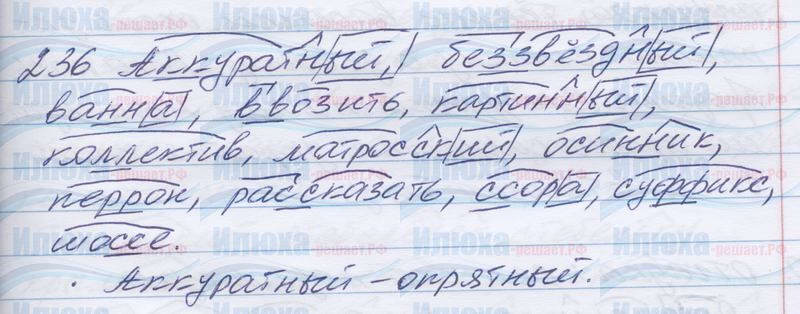 236 Аккуратный, беззвёздный,
ванна, ввозить, картинный,
коллектив, матросский, осинник,
перрон, рассказать, ссора, суффикс,
шоссе.
Аккуратный – опрятный.